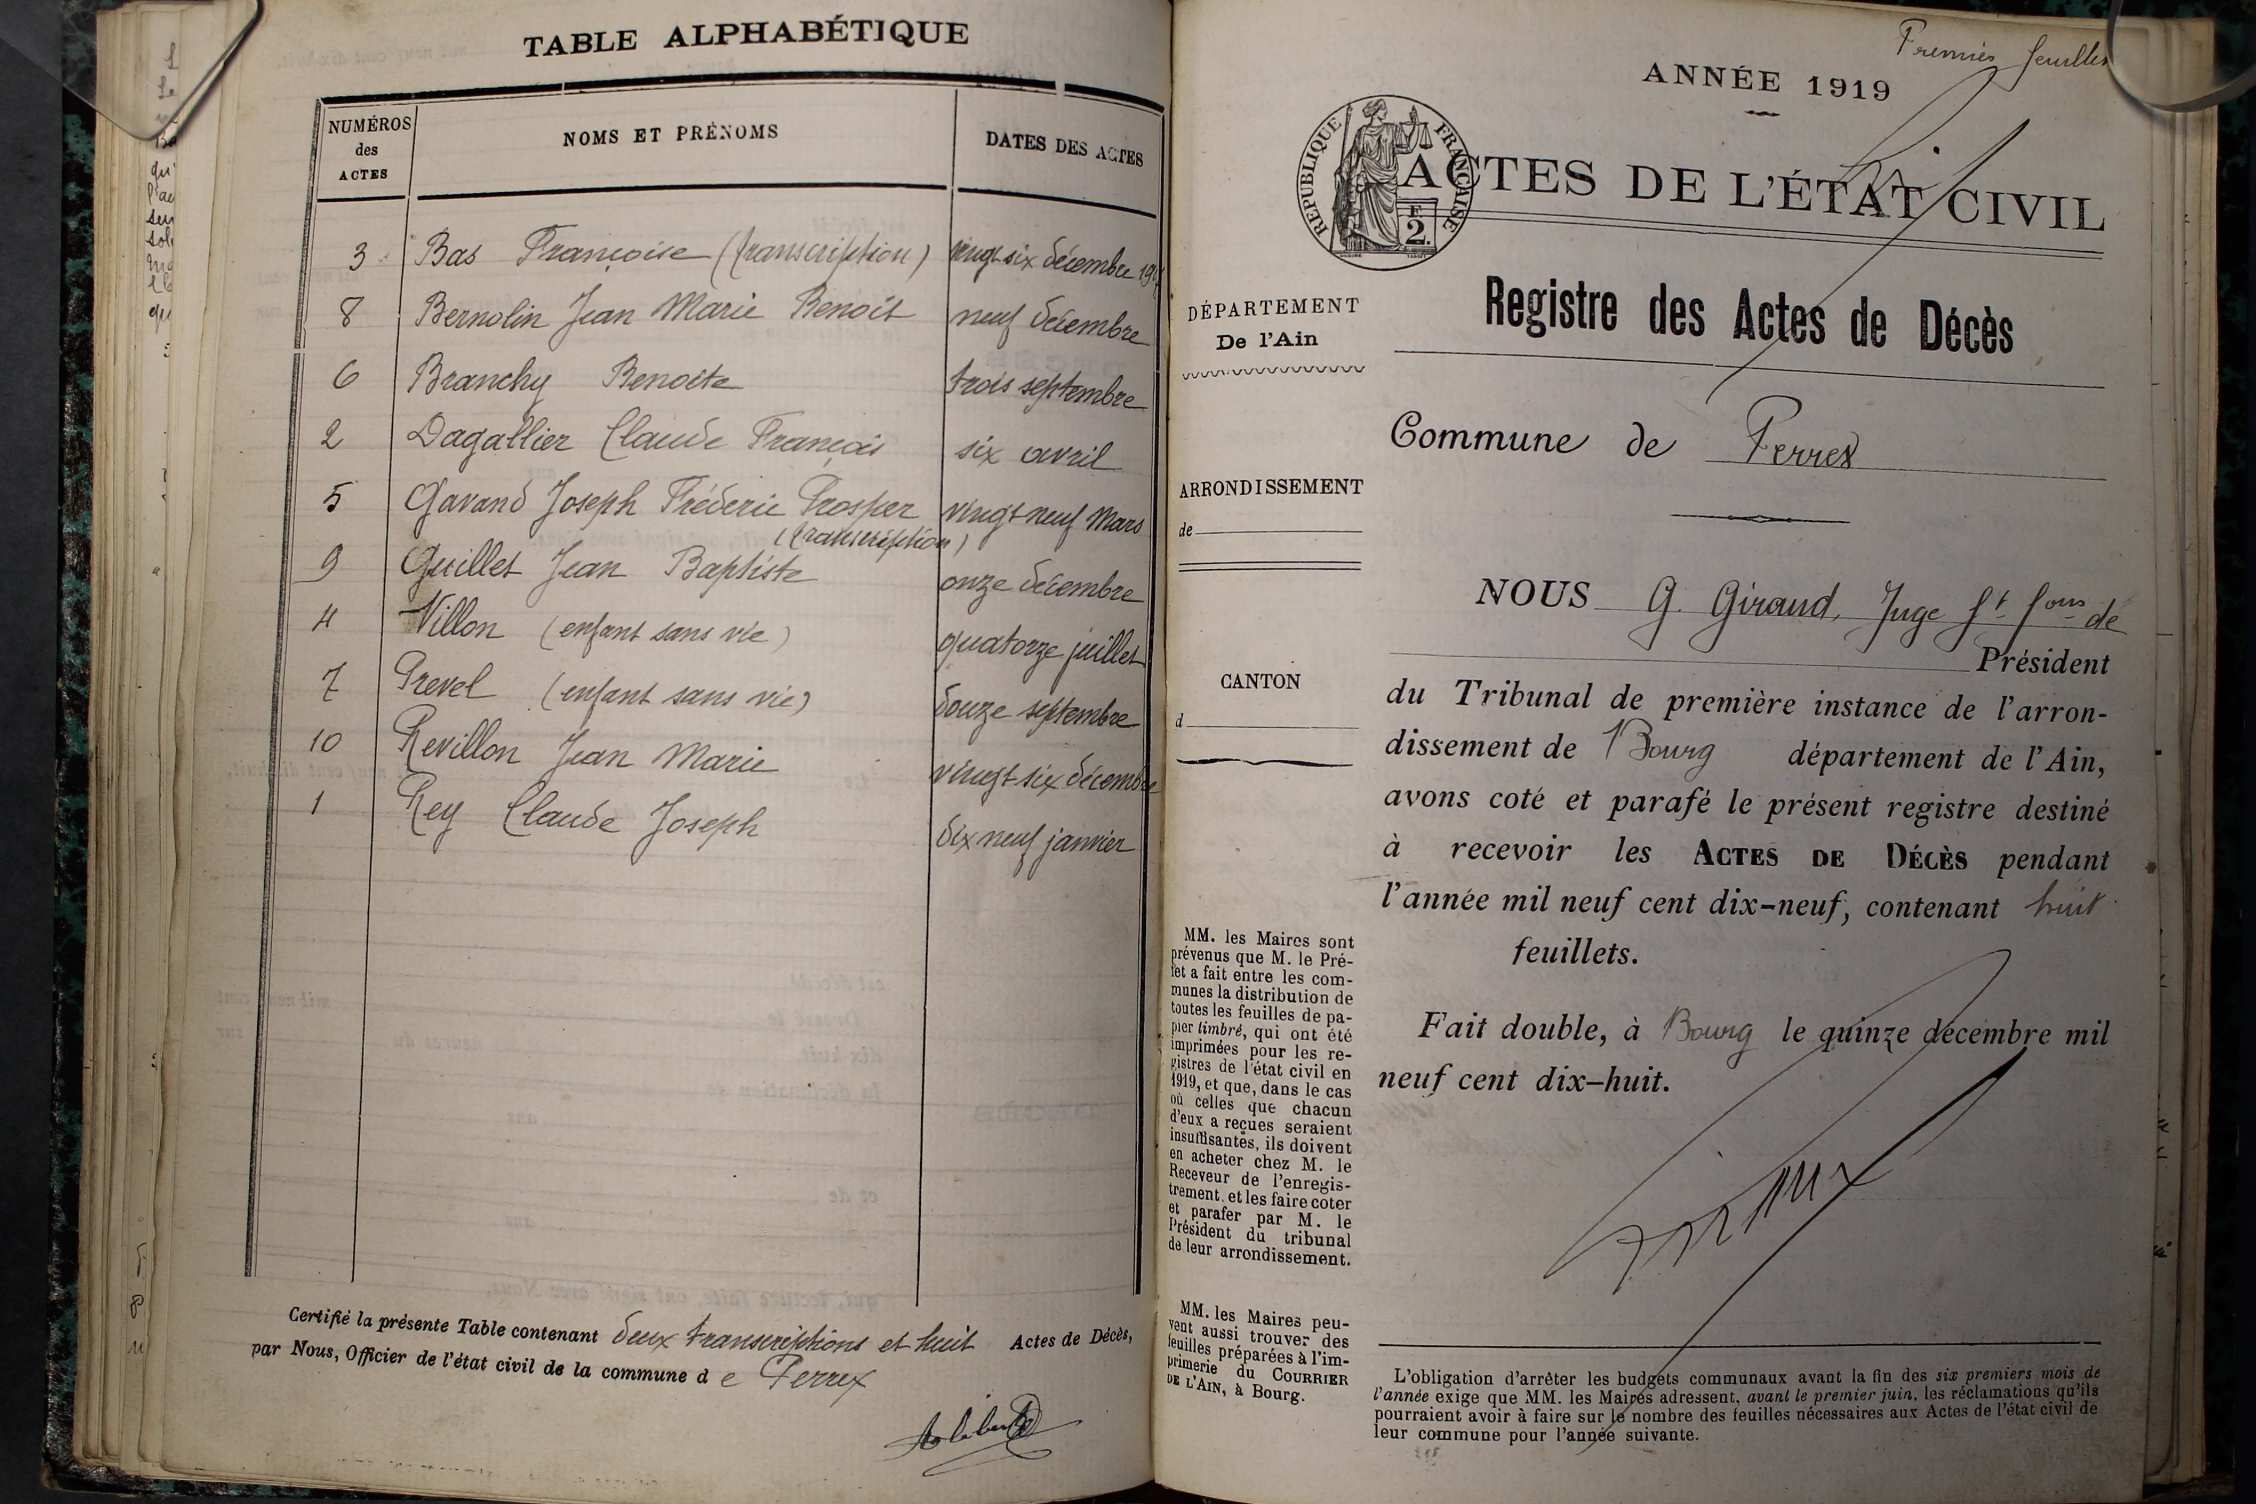 TABLE ALPHABÉTIQUE
NUMÉROS des ACTES
NOMS ET PRÉNOMS
DATES DES ACTES
3 Bas Françoise (transcription) vingt six décembre
8 Bernolin Jean Marie Benoit neuf décembre
6 Branchy Benoite trois septembre
2 Dagallier Claude François six avril
5 Gavand Joseph Fréderic Prosper vingt neuf Mars
(transcription)
9 Guillet Jean Baptiste onze décembre
4 Villon (enfant sans vie) quatorze juillet
7 Prevel (enfant sans vie) douze septembre
10 Revillon Jean Marie vingt six décembre
1 Rey Claude Joseph dix neuf janvier
Certifié la présente Table contenant deux transcriptions et huit Actes de Décès,
par Nous, Officier de l'état civil de la commune d e Perrex
Premier feuillet
ANNÉE 1919
RÉPUBLIQUE FRANÇAISE
2
ACTES DE L'ÉTAT CIVIL
Registre des Actes de Décès
DÉPARTEMENT
De l'Ain
Commune de Perrex
ARRONDISSEMENT
de
CANTON
d
NOUS G. Giraud, Juge ft fons de
Président
du Tribunal de première instance de l'arron-
dissement de Bourg département de l'Ain,
avons coté et parafé le présent registre destiné
à recevoir les ACTES DE DÉCÈS pendant
l'année mil neuf cent dix-neuf, contenant huit
feuillets.
Fait double, à Bourg le quinze décembre mil
neuf cent dix-huit.
MM. les Maires sont
prévenus que M. le Pré-
fet a fait entre les com-
munes la distribution de
toutes les feuilles de pa-
pier timbré, qui ont été
imprimées pour les re-
gistres de l'état civil en
1919, et que, dans le cas
où celles que chacun
d'eux a reçues seraient
insuffisantes, ils doivent
en acheter chez M. le
Receveur de l'enregis-
trement, et les faire coter
et parafer par M. le
Président du tribunal
de leur arrondissement.
MM. les Maires peu-
vent aussi trouver des
feuilles préparées à l'im-
primerie du COURRIER
DE L'AIN, à Bourg.
L'obligation d'arrêter les budgets communaux avant la fin des six premiers mois de
l'année exige que MM. les Maires adressent, avant le premier juin, les réclamations qu'ils
pourraient avoir à faire sur le nombre des feuilles nécessaires aux Actes de l'état civil de
leur commune pour l'année suivante.